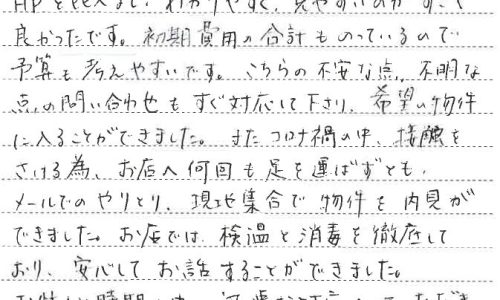 HPを比べまし わかりやすく、見やすいのが すごく
良かったです。初期費用の合計ものっているので
予算も考えやすいです。こちらの不安な点、不明な
点の問い合わせもすぐ対応して下さり、希望の物件
に入ることができました。またコロナ禍の中、接触を
さける為、お店へ何回も足を運ばずとも、
メールでのやりとり、現地集合で物件を内見が
できました。お店では、検温と消毒を徹底して
おり、安心してお話することができました。
お忙しい時間の中